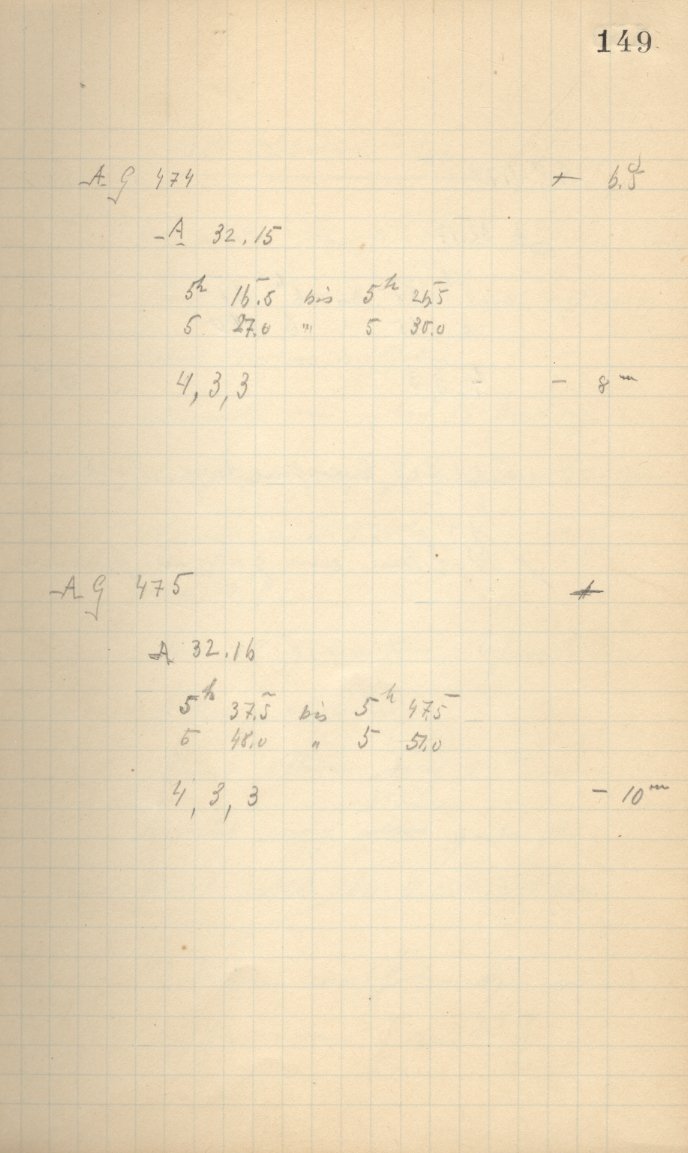 149
A G 474 + 6.5
A 32.15
5h 16.5 bis 5h 26.5
5 27.0 " 5 30.0
4, 3, 3 - 8m
A G 475 +
A 32.16
5h 37.5 bis 5h 47.5
5 48.0 " 5 51.0
4, 3, 3 - 10m